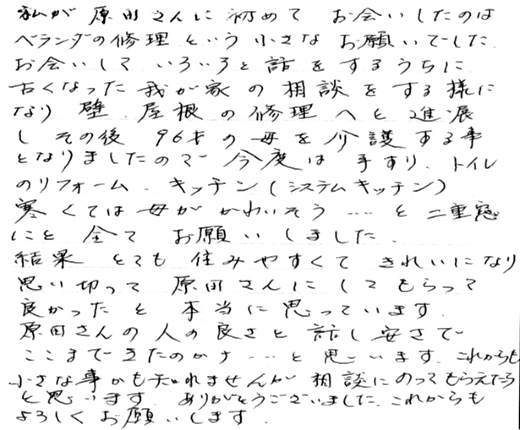 私が 原田さんに 初めて お会いしたのは
ベランダの修理 という 小さな お願いでした.
お会いして いろいろと 話を するうちに
古くなった 我が家 の 相談を する様に
なり 壁 屋根 の 修理 へと 進展
し その後 96才の 母を 介護する事
となりましたので 今度は 手すり、トイレ
のリフォーム、キッチン(システムキッチン)
寒くては 母が かわいそう … と 二重窓
にと 全て お願いしました.
結果 とても 住みやすくて きれいになり
思い切って 原田さんに して もらって
良かった と 本当に 思っています.
原田さんの 人の 良さと 話し安さで
ここまで きたのかナ … と 思います. これからも
小さな事かも知れませんが 相談に のって もらえたら
と思います. ありがとうございました. これからも
よろしく お願いします.